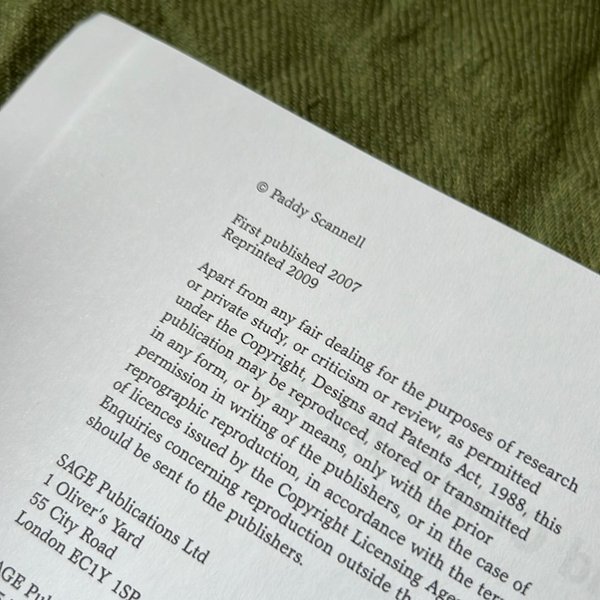 © Paddy Scannell
First published 2007
Reprinted 2009
Apart from any fair dealing for the purposes of research
or private study, or criticism or review, as permitted
under the Copyright, Designs and Patents Act, 1988, this
publication may be reproduced, stored or transmitted
in any form, or by any means, only with the prior
permission in writing of the publishers, or in the case of
reprographic reproduction, in accordance with the
of licences issued by the Copyright Licensing
Enquiries concerning reproduction outside
should be sent to the publishers.
SAGE Publications Ltd
1 Oliver's Yard
55 City Road
London EC1Y 1SP